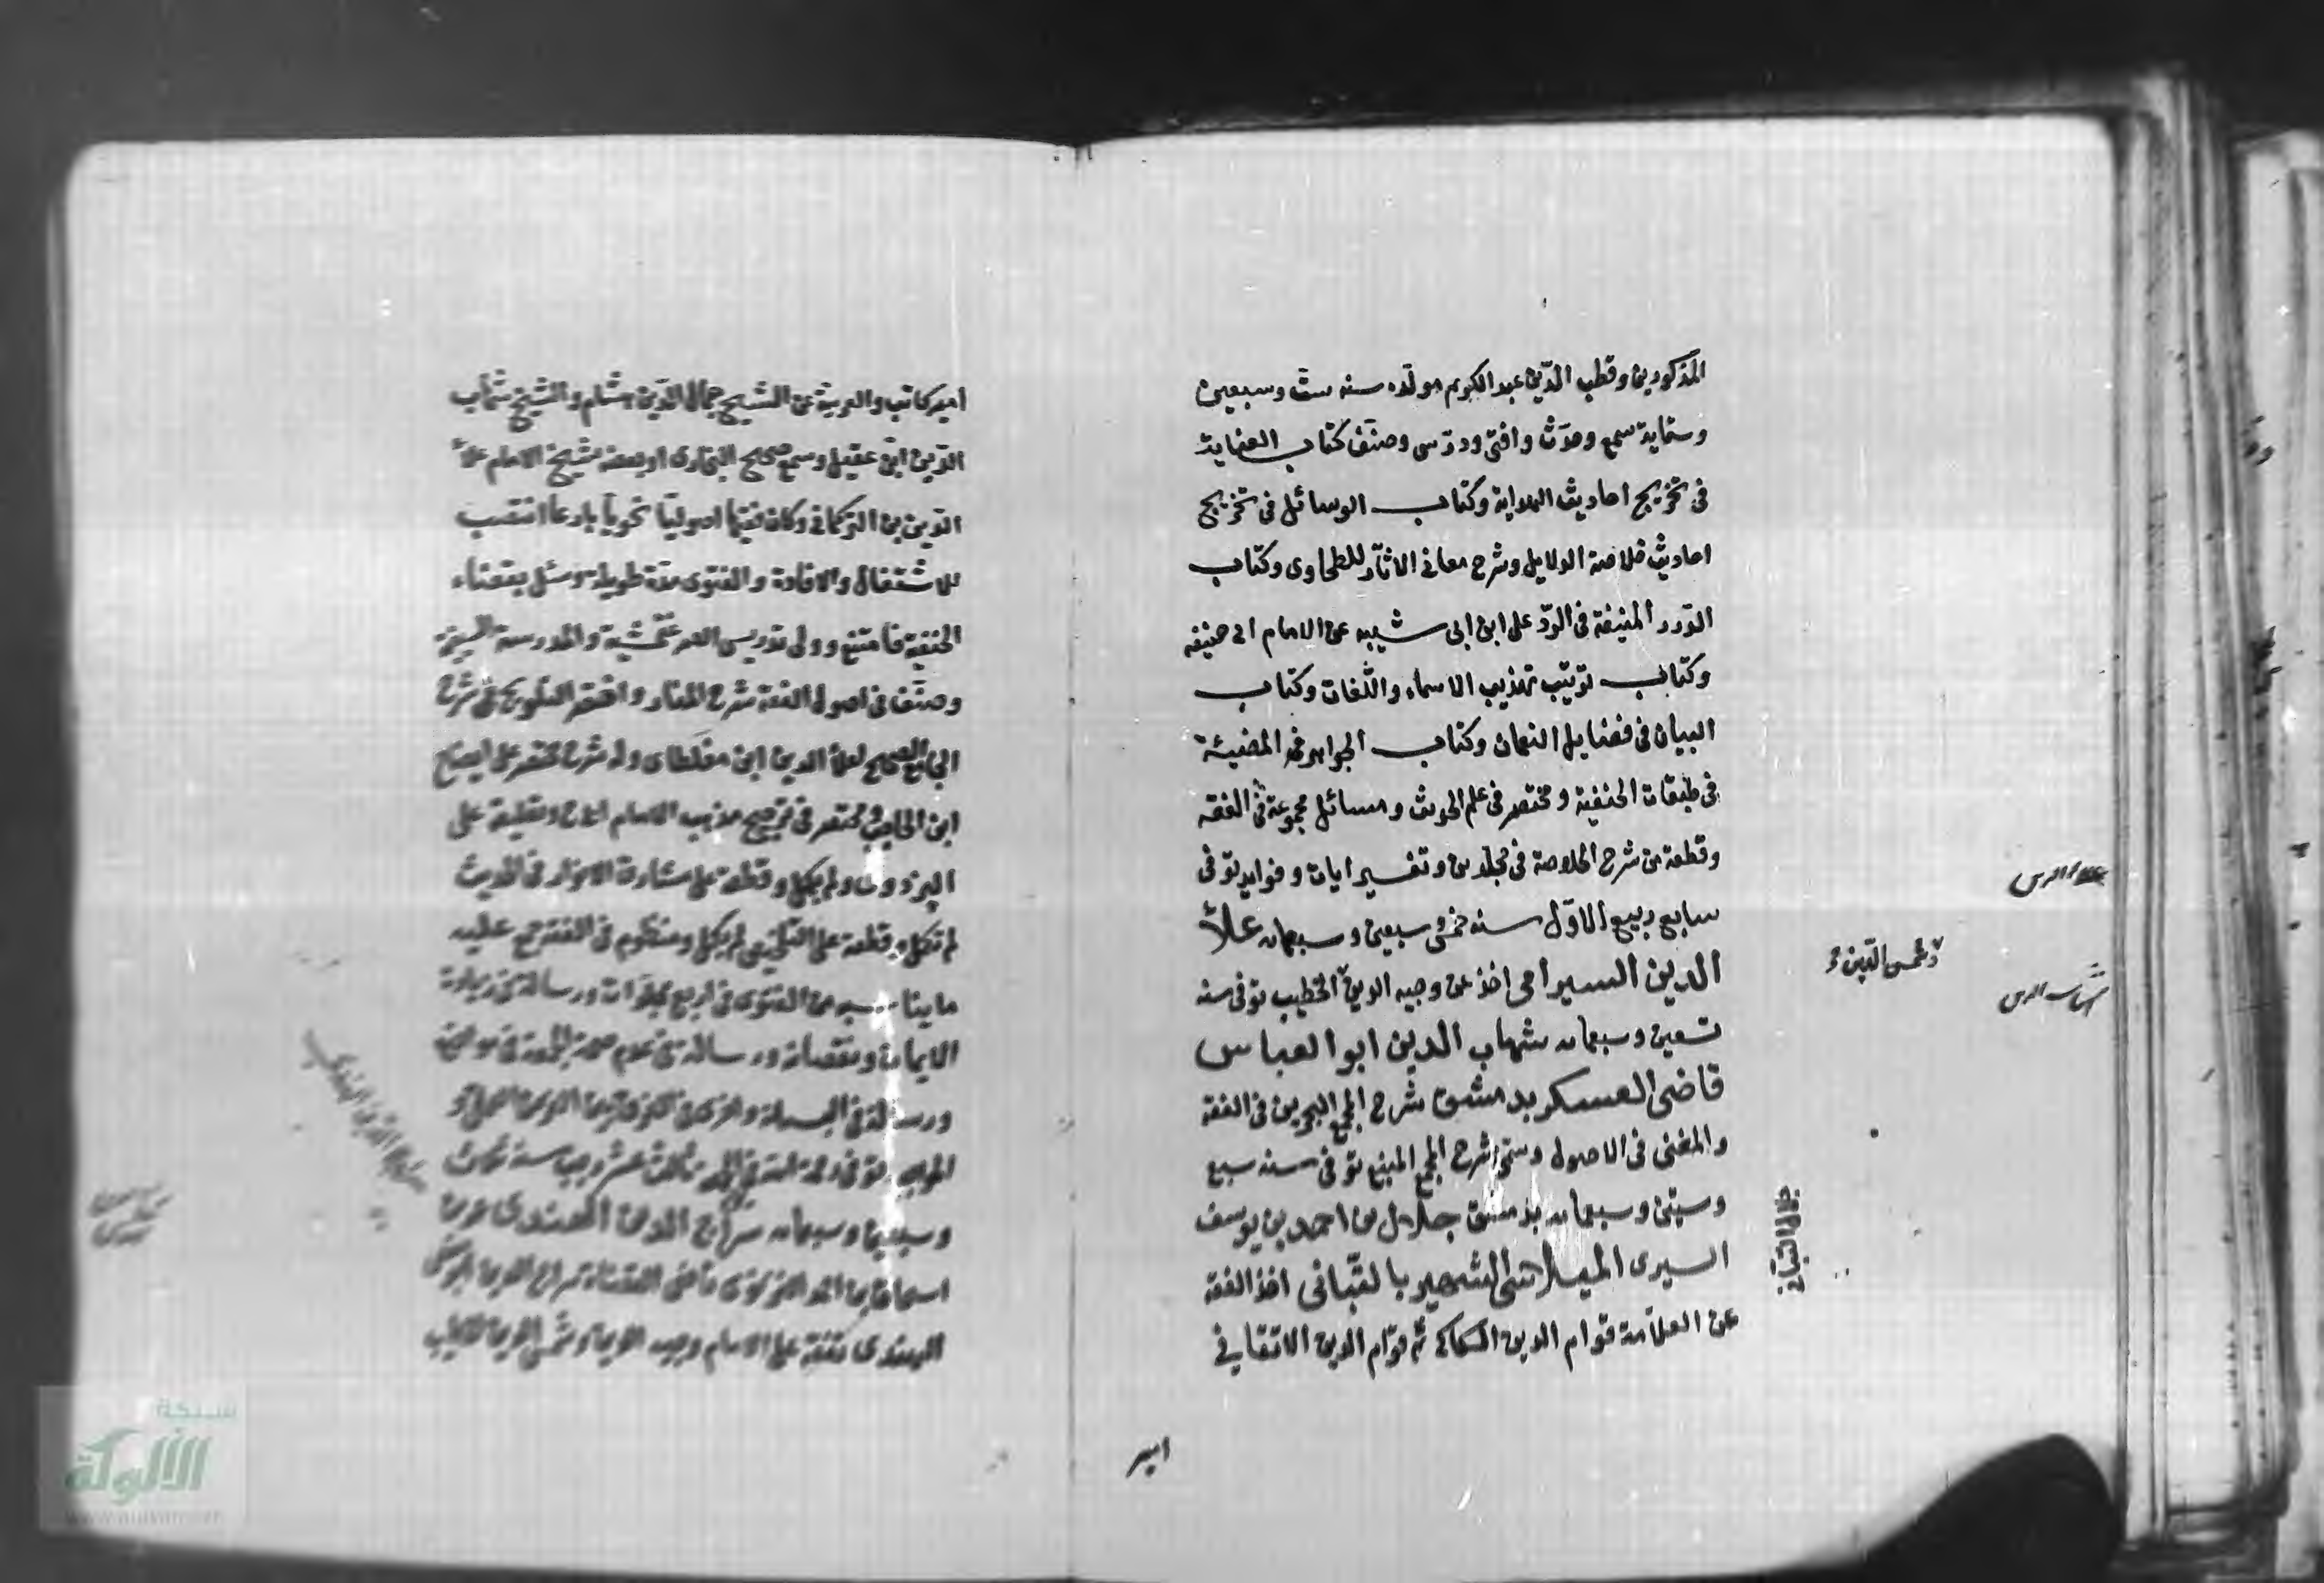 المذكورين وقطب الدّين عبد الكريم مولده سنه ستّ وسبعين
وستماية سمع وحدّث وافتى ودرّس وصنّف كتاب العناية
فى تخريج احاديث الهداية وكتاب الوسائل فى تخريج
احاديث خلاصة الدلايل وشرح معانى الاثار للطحاوى وكتاب
الدّرر المنيفة فى الردّ على ابن ابى شيبه عن الامام ابى حنيفه
وكتاب ترتيب تهذيب الاسماء واللّغات وكتاب
البيان فى فضايل النعمان وكتاب الجواهر المضيئة
فى طبقات الحنفية ومختصر فى علم الحديث ومسائل مجموعة فى الفقه
وقطعة من شرح الخلاصة فى مجلدين وتفسير ايات وفوايد توفى
سابع ربيع الاوّل سنه خمس وسبعين وسبعمايه علاّ
الدين السيرامى اخذ عن وجيه الدين الخطيب توفى سنه
تسعين وسبعمايه شهاب الدين ابو العباس
قاضى العسكر بدمشق شرح المجمع البحرين فى الفقه
والمغنى فى الاصول وسمّى شرح المجمع المنبع توفى سنه سبع
وستين وسبعمايه بدمشق جلال بن احمد بن يوسف
السيرى الشهير بالتّبانى اخذ الفقه
عن العلاّمة قوام الدين الكاكى ثم قوّام الدين الاتقانى
امير
علاء الدين
وشمس الدّين
شهاب الدين
جلال التبانى
امير كاتب والعربية عن الشيخ جمال الدّين هشام والشيخ شهاب
الدّين ابن عقيل وسمع صحيح البخارى او بعضه شيخ الامام علاّ
الدّين بن التركمانى وكان فقيها اصوليّا نحويا بارعا انتصب
للاشتغال والافادة والفتوى مدّة طويلة وسئل بقضاء
الحنفية فامتنع وولى تدريس الصرغتمشية والمدرسة
وصنّف فى اصول الفقه شرح المنار واختصر التلويح فى شرح
الجامع الصحيح لعلاّ الدين ابن مغلطاى وله شرح مختصر على ايضاح
ابن الحاجب ومختصر فى ترجيح مذهب الامام وتعليقة على
البزدوى ولم يكمل وقطعة على مشارق الانوار فى الحديث
لم تكمل وقطعة على التلخيص لم يكمل ومنظوم فى الفقه
ما يناسبه من الفتوى فى اربع مجلّدات ورسالة فى زيادة
الايمان ونقصانه ورسالة فى عدم صحة الجمعة فى موضعين
ورسالة فى البسملة
توفى ثالث عشر رجب سنة ثلاث
وسبعين وسبعمايه سراج الدين الهندى عمر بن
اسحاق بن احمد الغزنوى قاضى القضاة سراج الدين
الهندى تفقه على الامام وجيه الدين وشمس الدين الخطيب
سراج الدّين الهندى
شبكة
الألوكة